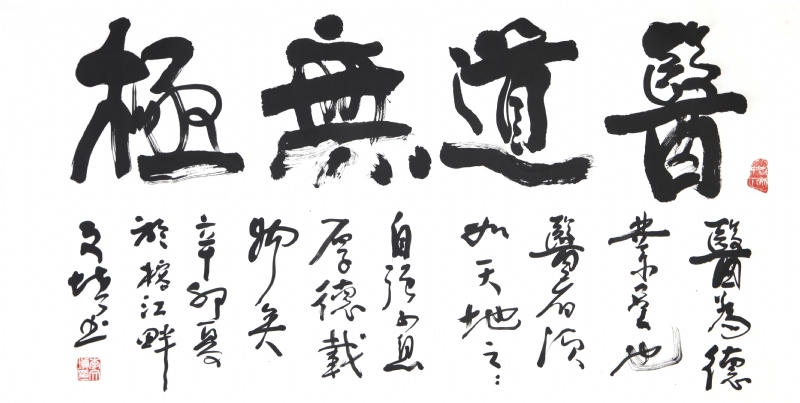 醫道無極
醫為德
業也
醫者須
如天地之:
自强不息
厚德載
物矣
辛卯夏
於榕江畔
文培书